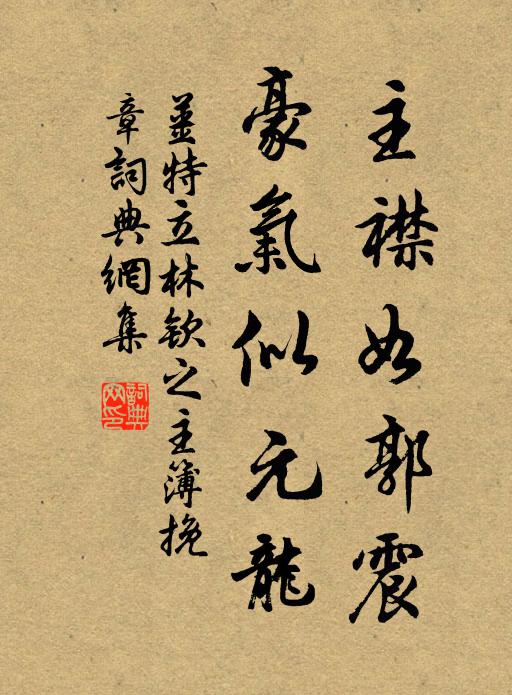 主襟如郭震
豪氣似元龍
姜特立林欽之主簿挽
章詞典網集
詞典
网印